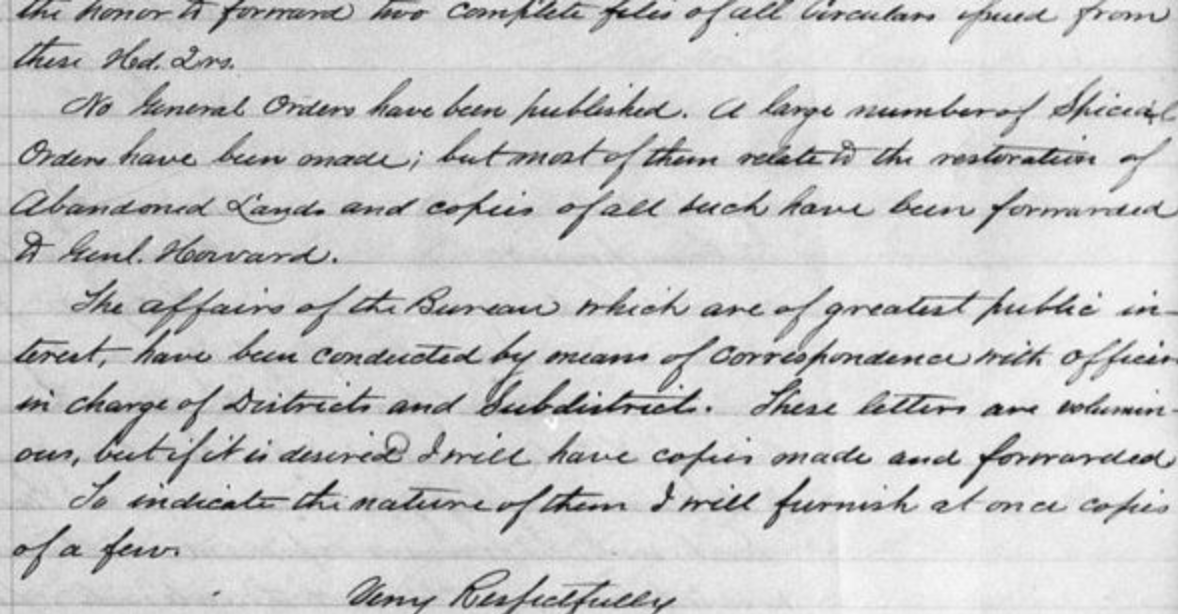 the honor to forward two complete files of all Circulars issued from
these Hd. Qrs.
No General Orders have been published. A large number of Special
Orders have been made; but most of them relate to the restoration of
Abandoned Lands and copies of all such have been forwarded
to Genl. Howard.
The affairs of the Bureau which are of greatest public in-
terest, have been conducted by means of correspondence with officers
in charge of Districts and Subdistricts. These letters are volumin-
ous, but if it is desired I will have copies made and forwarded
To indicate the nature of them I will furnish at once copies
of a few.
Very Respectfully